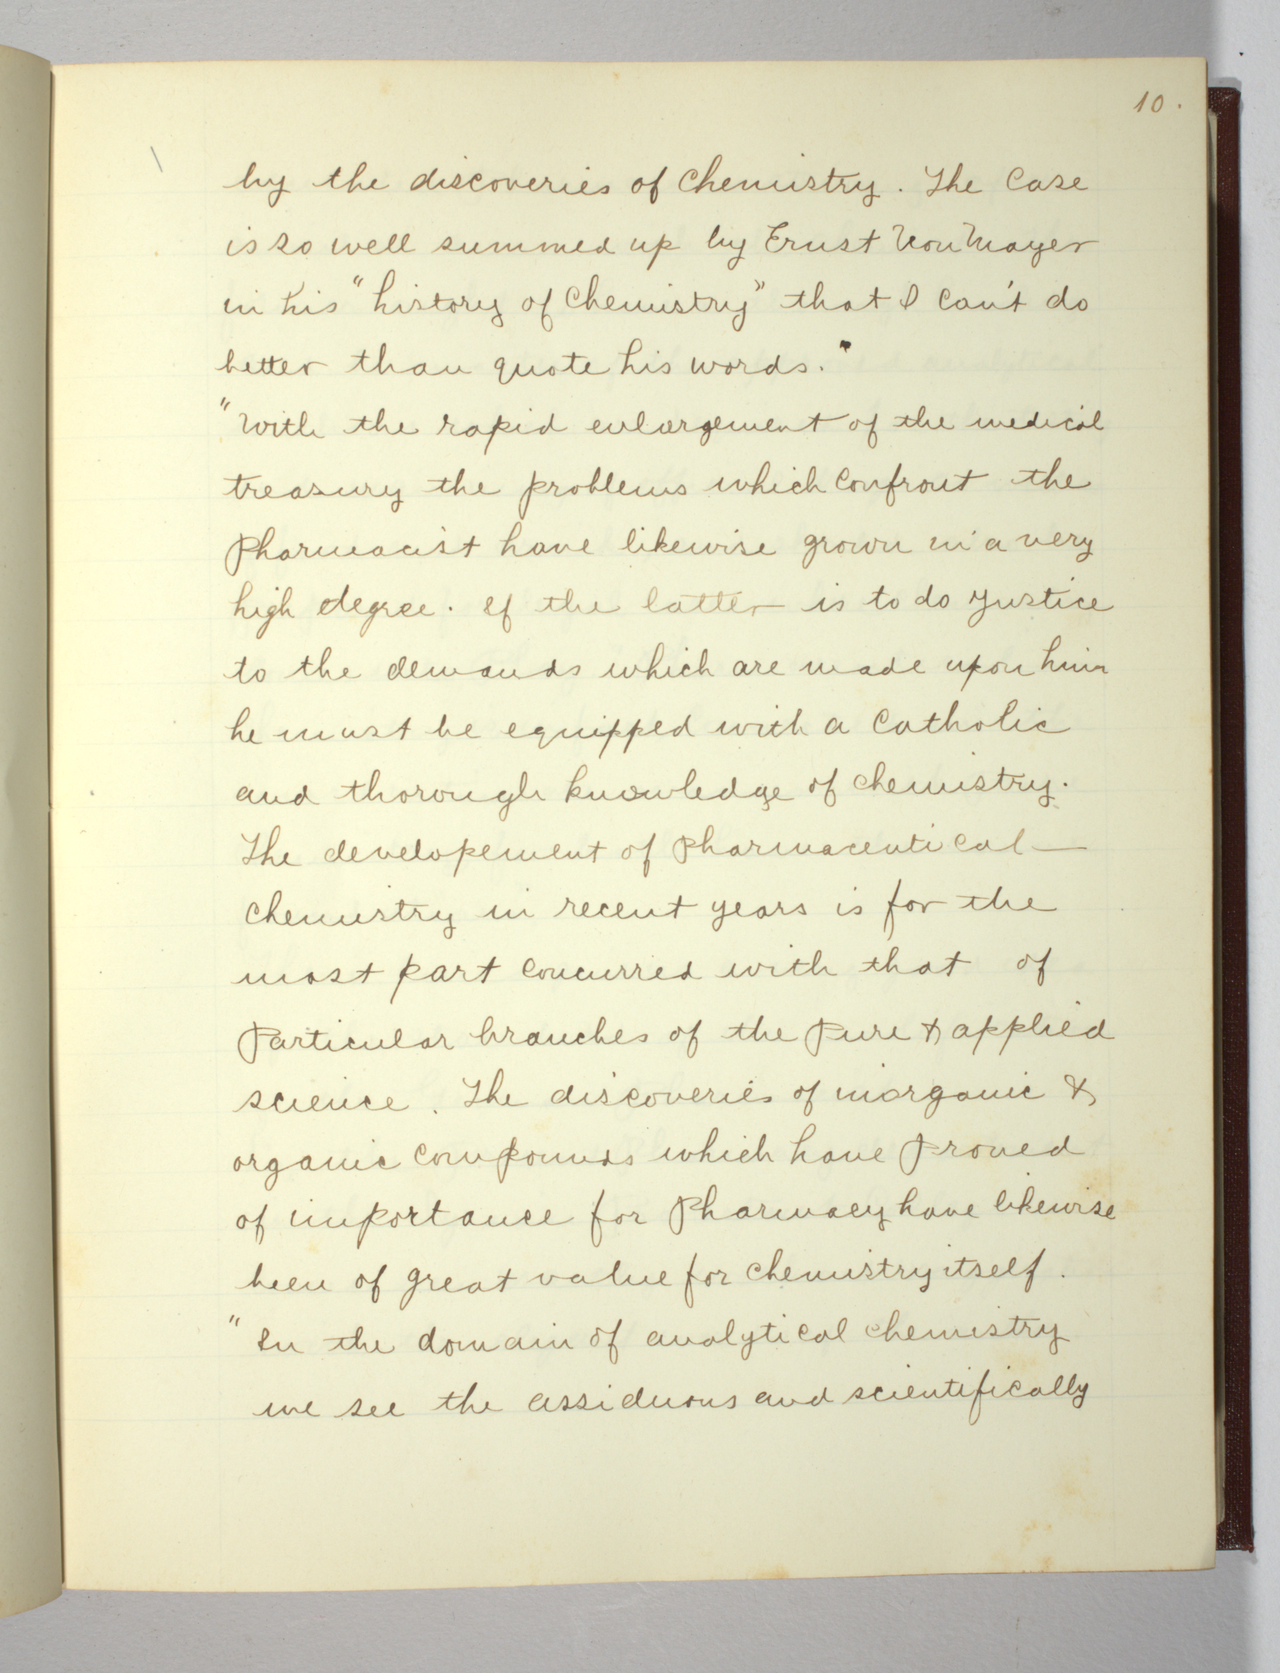 10.
by the discoveries of Chemistry. The Case
is so well summed up by Ernst Von Mayer
in his "history of Chemistry" that I can't do
better than quote his words."
"With the rapid enlargement of the medical
treasury the problems which confront the
Pharmacist have likewise grown in a very
high degree. If the latter is to do justice
to the demands which are made upon him
he must be equipped with a Catholic
and thorough knowledge of chemistry.
The developement of Pharmaceutical
chemistry in recent years is for the
most part concurred with that of
Particular branches of the Pure & applied
science. The discoveries of inorganic &
organic compounds which have Proved
of importance for Pharmacy have likewise
been of great value for chemistry itself.
"In the domain of analytical chemistry
we see the assiduous and scientifically